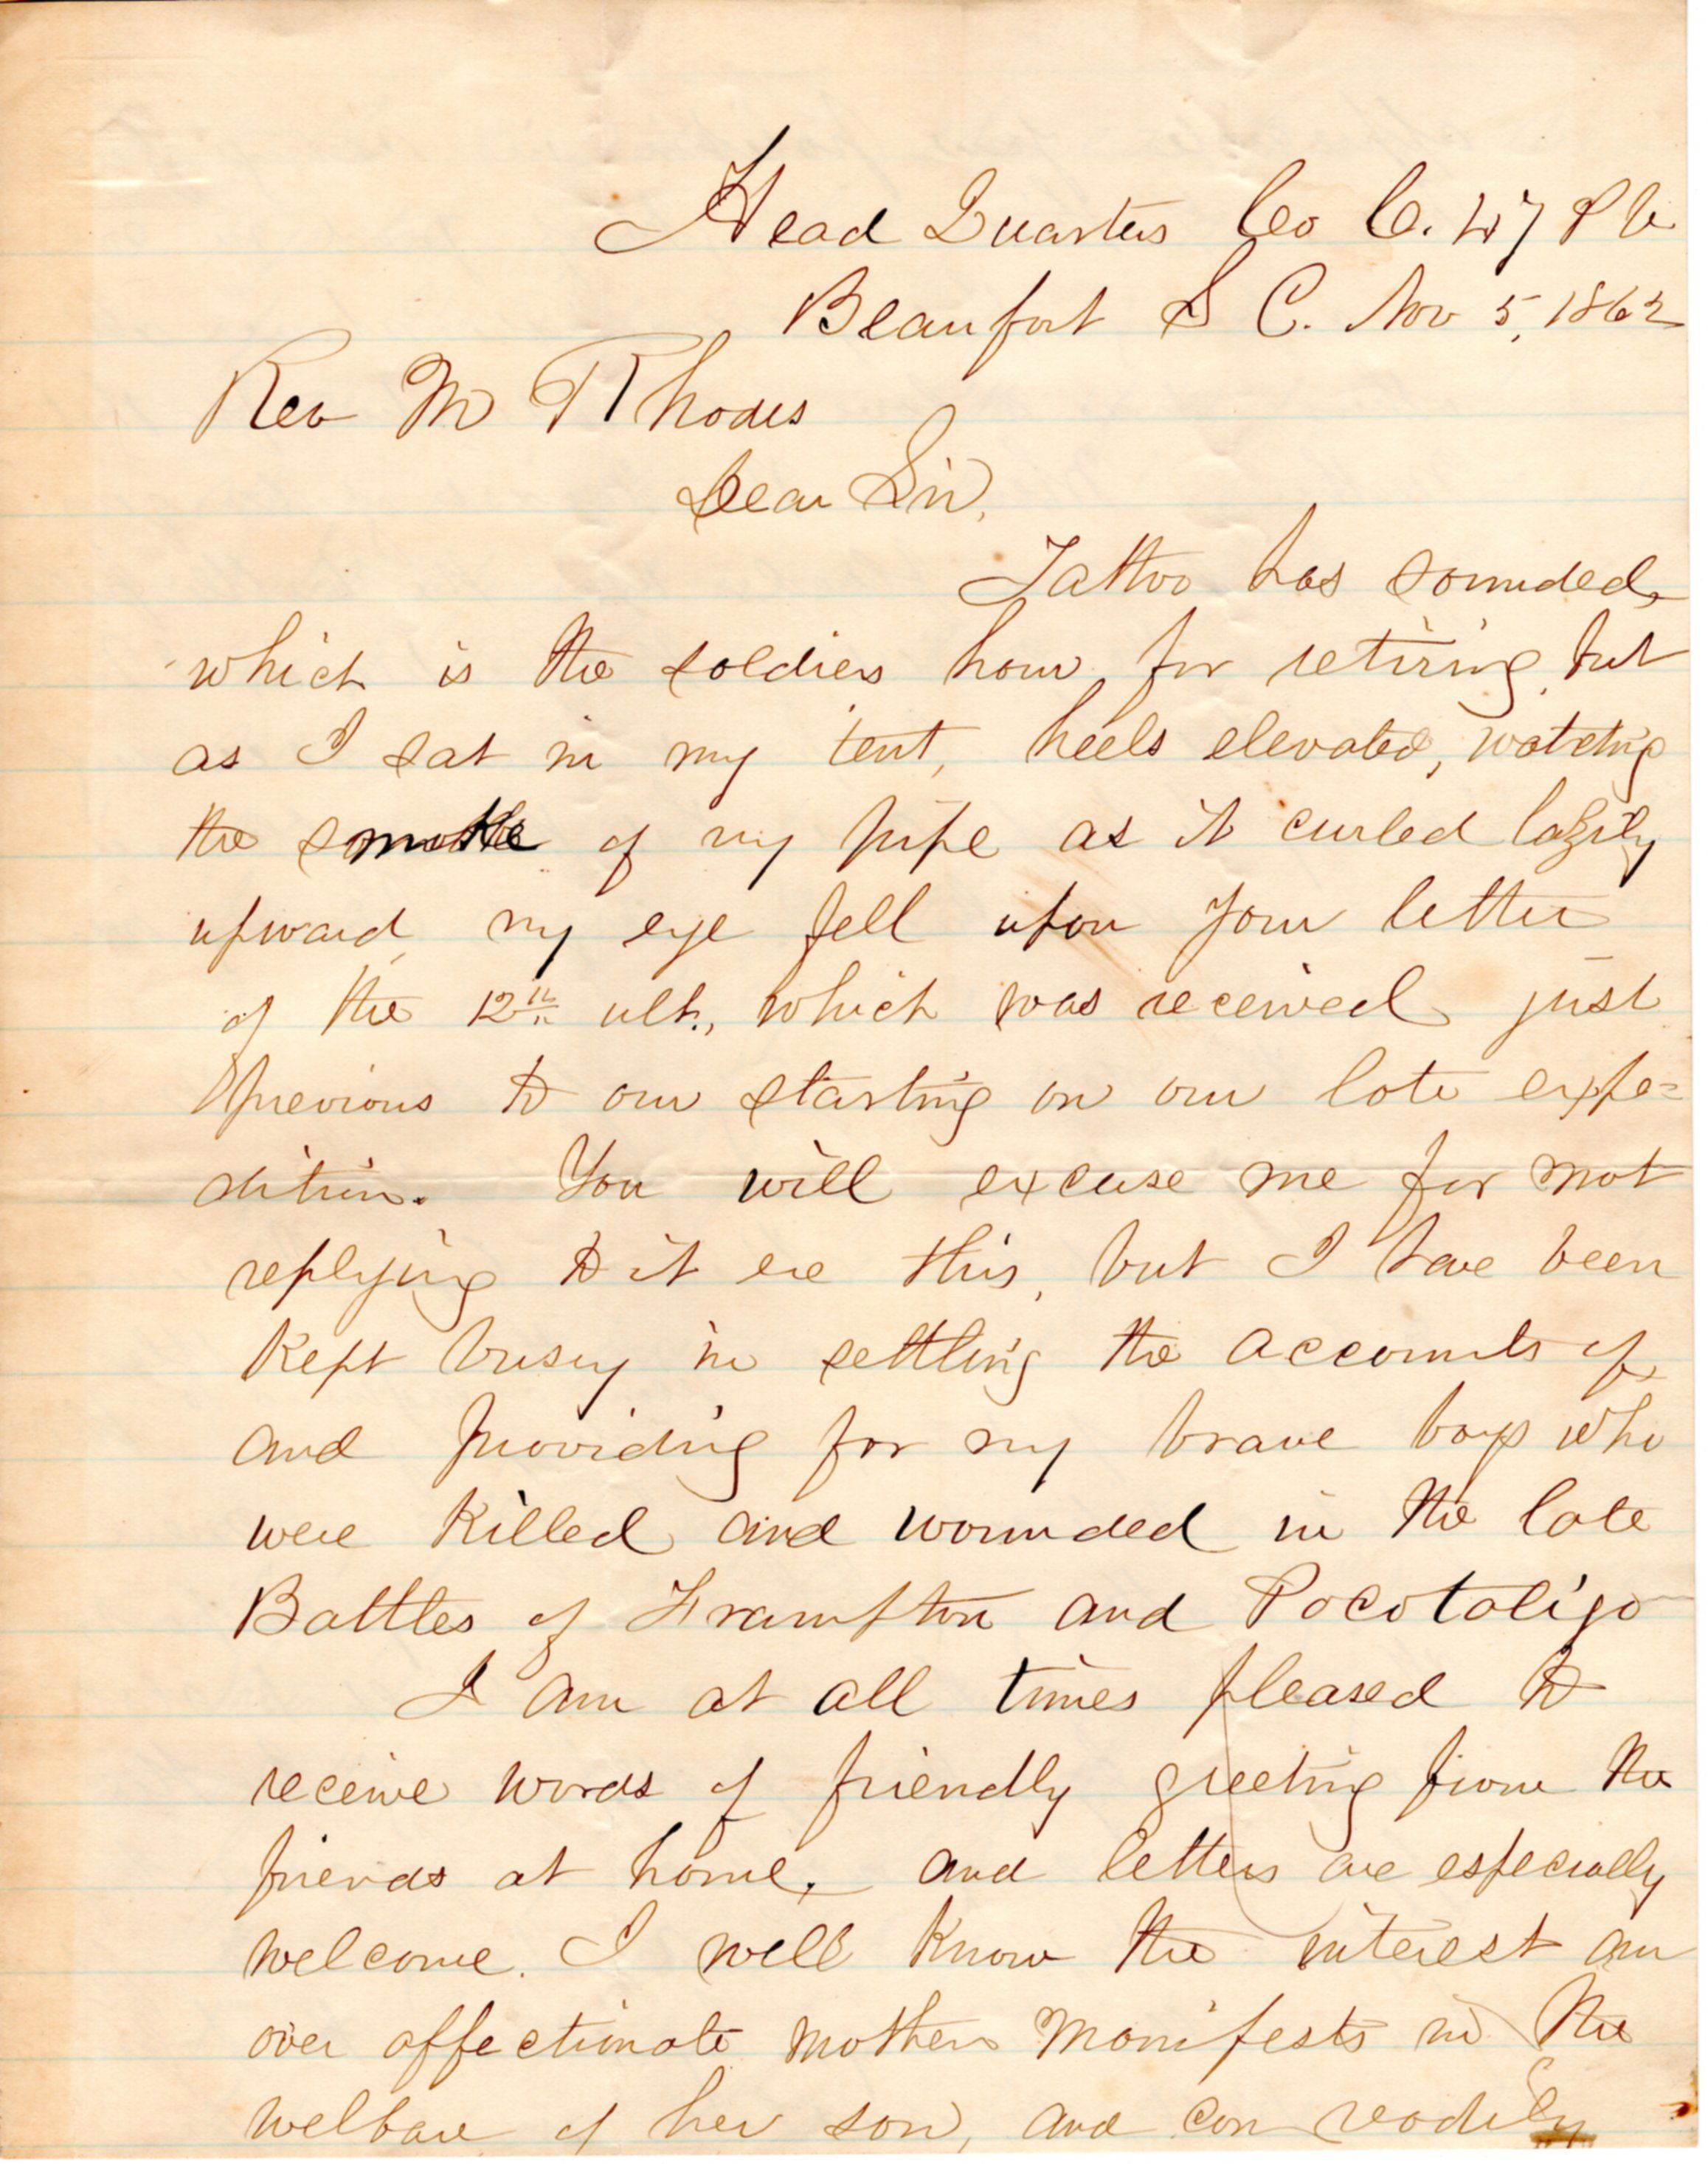 Head Quarters Co C. 47 P V
Beaufort S C. Nov 5, 1862
Rev M Rhodes
Dear Sir,
Tattoo has sounded,
which is the soldiers hour for retiring, but
as I sat in my tent, heels elevated, watching
the smoke of my pipe as it curled lazily
upward, my eye fell upon your letter
of the 12th ult., which was received just
previous to our starting on our late expe=
dition. You will excuse me for not
replying to it ere this, but I have been
kept busy in settling the accounts of,
and providing for my brave boys who
were killed and wounded in the late
Battles of Frampton and Pocotaligo
I am at all times pleased to
receive words of friendly greeting from the
friends at home, and letters are especially
welcome. I well know the interest an
over affectionate mother manifests in the
welfare of her son, and can readily